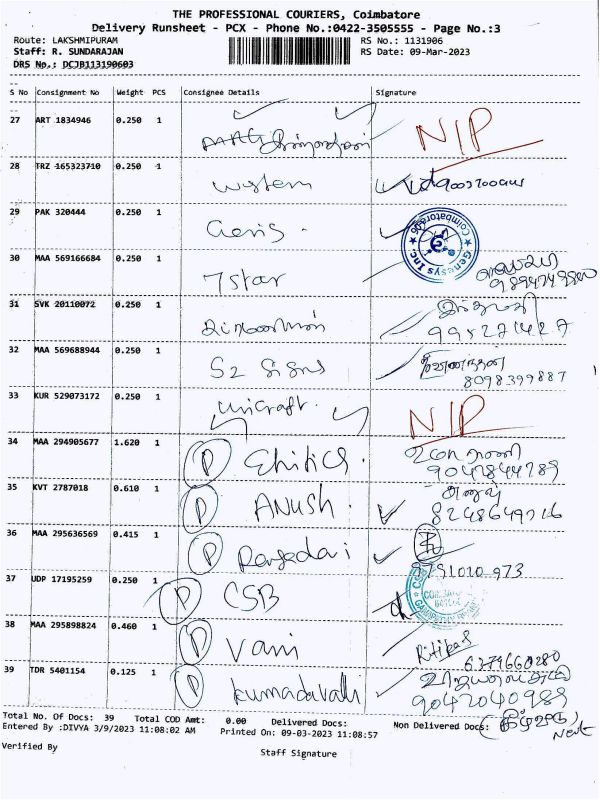 THE PROFESSIONAL COURIERS, Coimbatore
Delivery Runsheet - PCX - Phone No.:0422-3505555 - Page No.:3
Route: LAKSHMIPURAM RS No.: 1131906
Staff: R. SUNDARAJAN RS Date: 09-Mar-2023
DRS No.: DCJB113190603
S No Consignment No Weight PCS Consignee Details Signature
27 ART 1834946 0.250 1 N/P
28 TRZ 165323710 0.250 1 Western
29 PAK 320444 0.250 1 Genis.
Genesys Inc. Coimbatore
30 MAA 569166684 0.250 1 7star
31 SVK 20110072 0.250 1
995271427
32 MAA 569688944 0.250 1 S2
8098399887
33 KUR 529073172 0.250 1 Unicraft. N/P
34 MAA 294905677 1.620 1 P Ehitics.
9047844289
35 KVT 2787018 0.610 1 P ANUSH.
8248649216
36 MAA 295636569 0.415 1 P
9791010973
37 UDP 17195259 0.250 1 P CSB
38 MAA 295898824 0.460 1 P Vani Ritika S
6379660280
39 TDR 5401154 0.125 1 P kumadavalli
9047040989
Total No. Of Docs: 39 Total COD Amt: 0.00 Delivered Docs: Non Delivered Docs:
Next
Entered By :DIVYA 3/9/2023 11:08:02 AM Printed On: 09-03-2023 11:08:57
Verified By Staff Signature